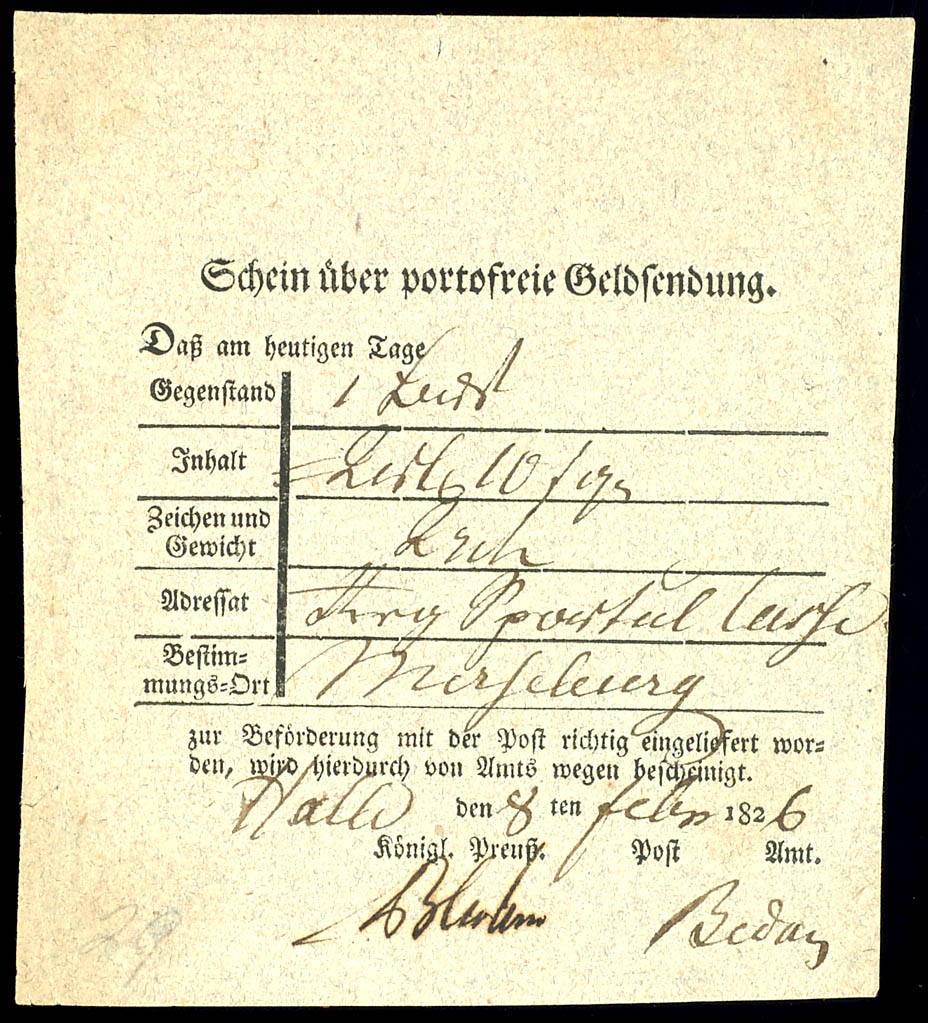 Schein über portofreie Geldsendung.
Daß am heutigen Tage
Gegenstand 1
Inhalt 10 sgr
Zeichen und
Gewicht
Adressat Sportul Casse
Bestim=
mungs=Ort Merseburg
zur Beförderung mit der Post richtig eingeliefert wor=
den, wird hierdurch von Amts wegen bescheinigt.
Halle den 8 ten Febr 1826
Königl. Preuß. Post Amt.